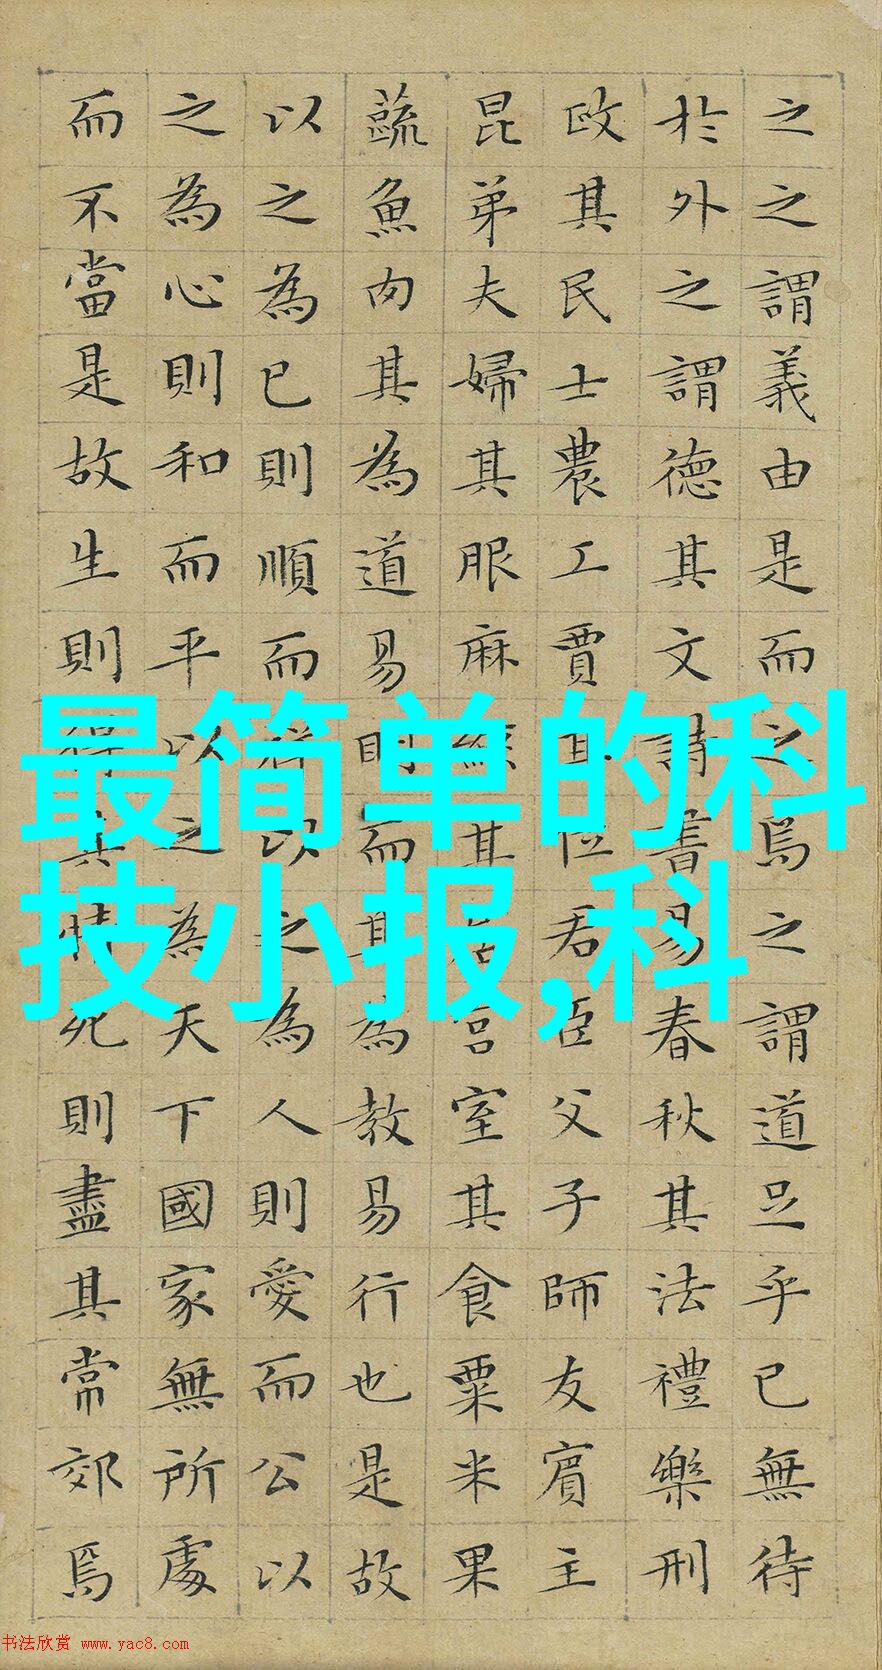 之之謂義由是而之焉之謂道足乎已無待
於外之謂德其文詩書易春秋其法禮樂刑
政其民士農工賈其位君臣父子師友賓主
昆弟夫婦其服麻絲其居宮室其食粟米果
蔬魚肉其為道易明而其為教易行也是故
以之為已則順而祥以之為人則愛而公以
之為心則和而平以之為天下國家無所處
而不當是故生則得其情死則盡其常郊焉
最简单的科
技小报,科
书法欣赏 www.yac8.com